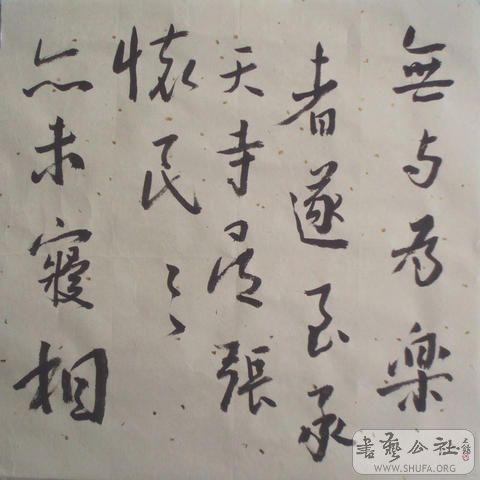 無与為樂
者遂至承
天寺尋張
懷民〻〻
亦未寢相
書藝公社
WWW.SHUFA.ORG